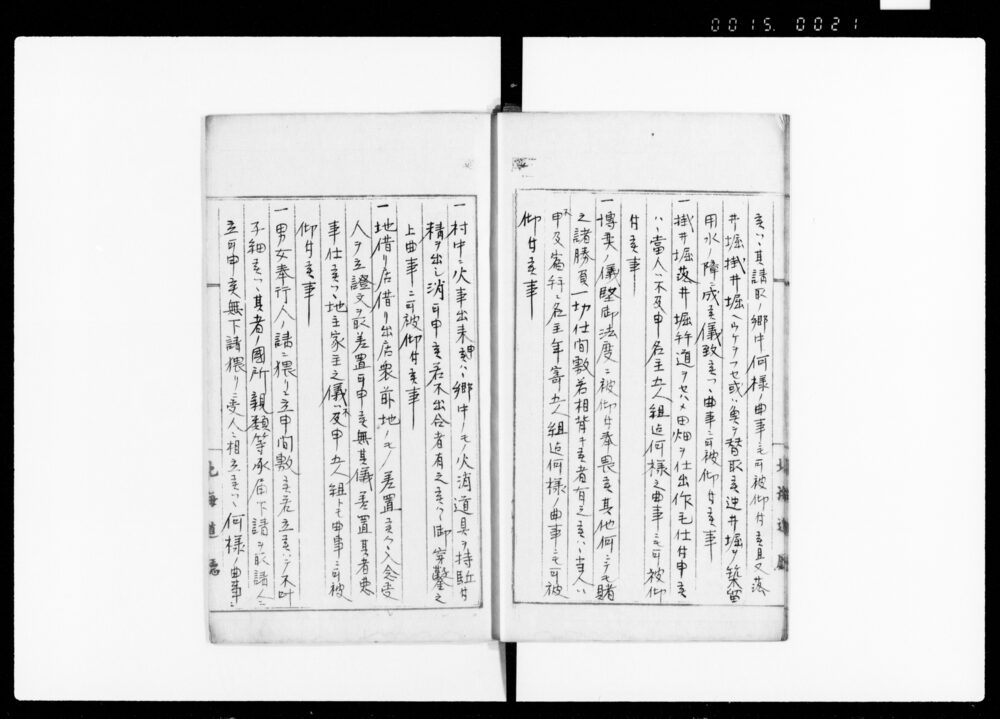 0015. 0021
亥ハヽ其請取ノ郷中何様ノ曲事ニモ可被仰付亥且又落
井堀掛井堀ヘウケヲフセ或ハ魚ヲ替取亥迚井堀ヲ築留
用水ノ障ニ成亥儀致亥ハヽ曲事ニ可被仰付亥事
一掛井堀落井堀幷道ヲセハメ田畑ヲ仕出作毛仕付申亥
ハヽ當人ハ不及申名主五人組迄何様之曲事ニモ可被仰
付亥事
一博奕ノ儀堅御法度ニ被仰付奉畏亥其他何ニテモ賭
之諸勝負一切仕間敷若相背キ亥者有之亥ハヽ主人ハ
不申及宿幷ニ名主年寄五人組迄何様ノ曲事ニモ可被
仰付亥事
一村中ニ火事出来申亥ハヽ郷中ノモノ火消道具ヲ持駈付
精ヲ出シ消可申亥若不出合者有之亥ハヽ御穿鑿之
上曲事ニ可被仰付亥事
一地借リ店借リ出居衆前地ノモノ差置亥ハヽ入念吉
人ヲ立證文ヲ取差置可申亥無其儀差置其者悪
事仕亥ハヽ地主家主之儀ハ不及申五人組トモ曲事ニ可被
仰付亥事
一男女奉行人ノ請ニ猥リニ立申間敷亥若立亥ハテ不叶
子細亥ハヽ其者ノ國所親類等承届下請ヲ取請人ニ
立可申亥無下請猥リニ受人ニ相立亥ハヽ何様ノ曲事ニ
北海道廳